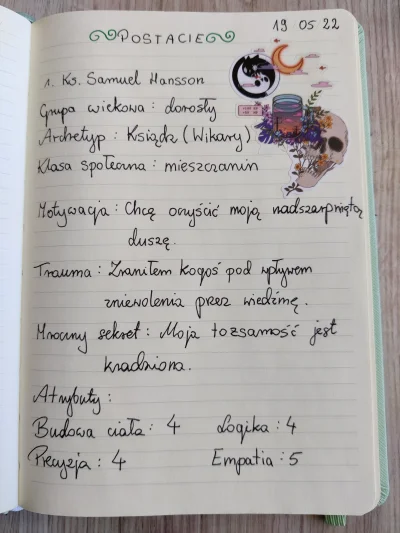 19 05 22
POSTACIE
1. Ks. Samuel Hansson
Grupa wiekowa : dorosły
Archetyp : Ksiądz (Wikary)
Klasa społeczna : mieszczanin
Motywacja : Chcę oczyścić moją nadszarpniętą
duszę.
Trauma : Zraniłem kogoś pod wpływem
zniewolenia przez wiedźmę.
Mroczny sekret : Moja tożsamość jest
kradziona.
Atrybuty :
Budowa ciała : 4 Logika : 4
Precyzja : 4 Empatia : 5